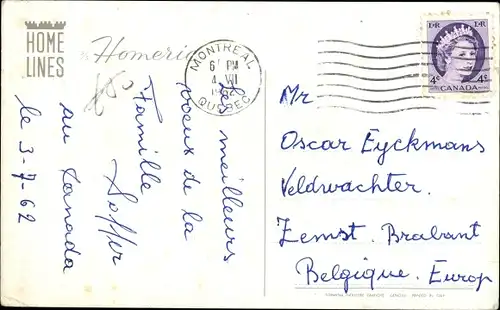 HOME
LINES
Homeric
MONTREAL
6 PM
4 VII
QUEBEC
E II R
E II R
4c
4c
CANADA
meilleurs
voeux de la
Famille
Soffer
au Canada
le 3-7-62
Mr
Oscar Eyckmans
Veldwachter.
Zemst. Brabant
Belgique. Europ